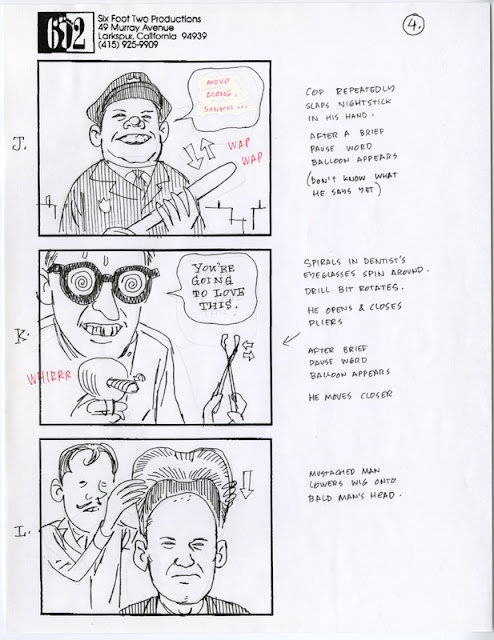 6'2
Six Foot Two Productions
49 Murray Avenue
Larkspur, California 94939
(415) 925-9909
4.
J.
MOVE
ALONG,
SONNY...
WAP
WAP
COP REPEATEDLY
SLAPS NIGHTSTICK
IN HIS HAND.
AFTER A BRIEF
PAUSE WORD
BALLOON APPEARS
(DON'T KNOW WHAT
HE SAYS YET)
K.
YOU'RE
GOING
TO LOVE
THIS.
WHIRRR
SPIRALS IN DENTIST'S
EYEGLASSES SPIN AROUND.
DRILL BIT ROTATES.
HE OPENS & CLOSES
PLIERS
AFTER BRIEF
PAUSE WORD
BALLOON APPEARS
HE MOVES CLOSER
L.
MUSTACHED MAN
LOWERS WIG ONTO
BALD MAN'S HEAD.